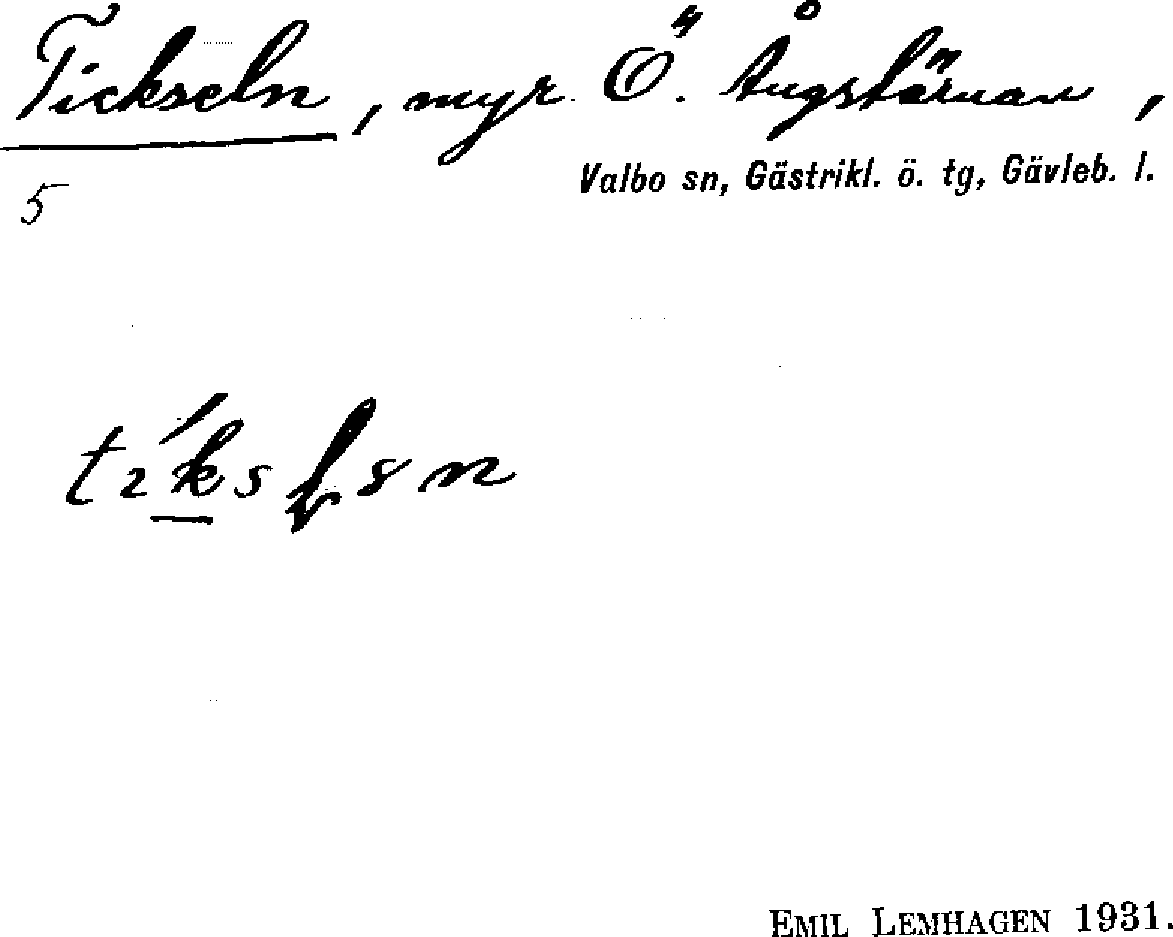 Tickseln, myr. Ö. Ångstärnan,
Valbo sn, Gästrikl. ö. tg, Gävleb. l.
5
EMIL LEMHAGEN 1931.